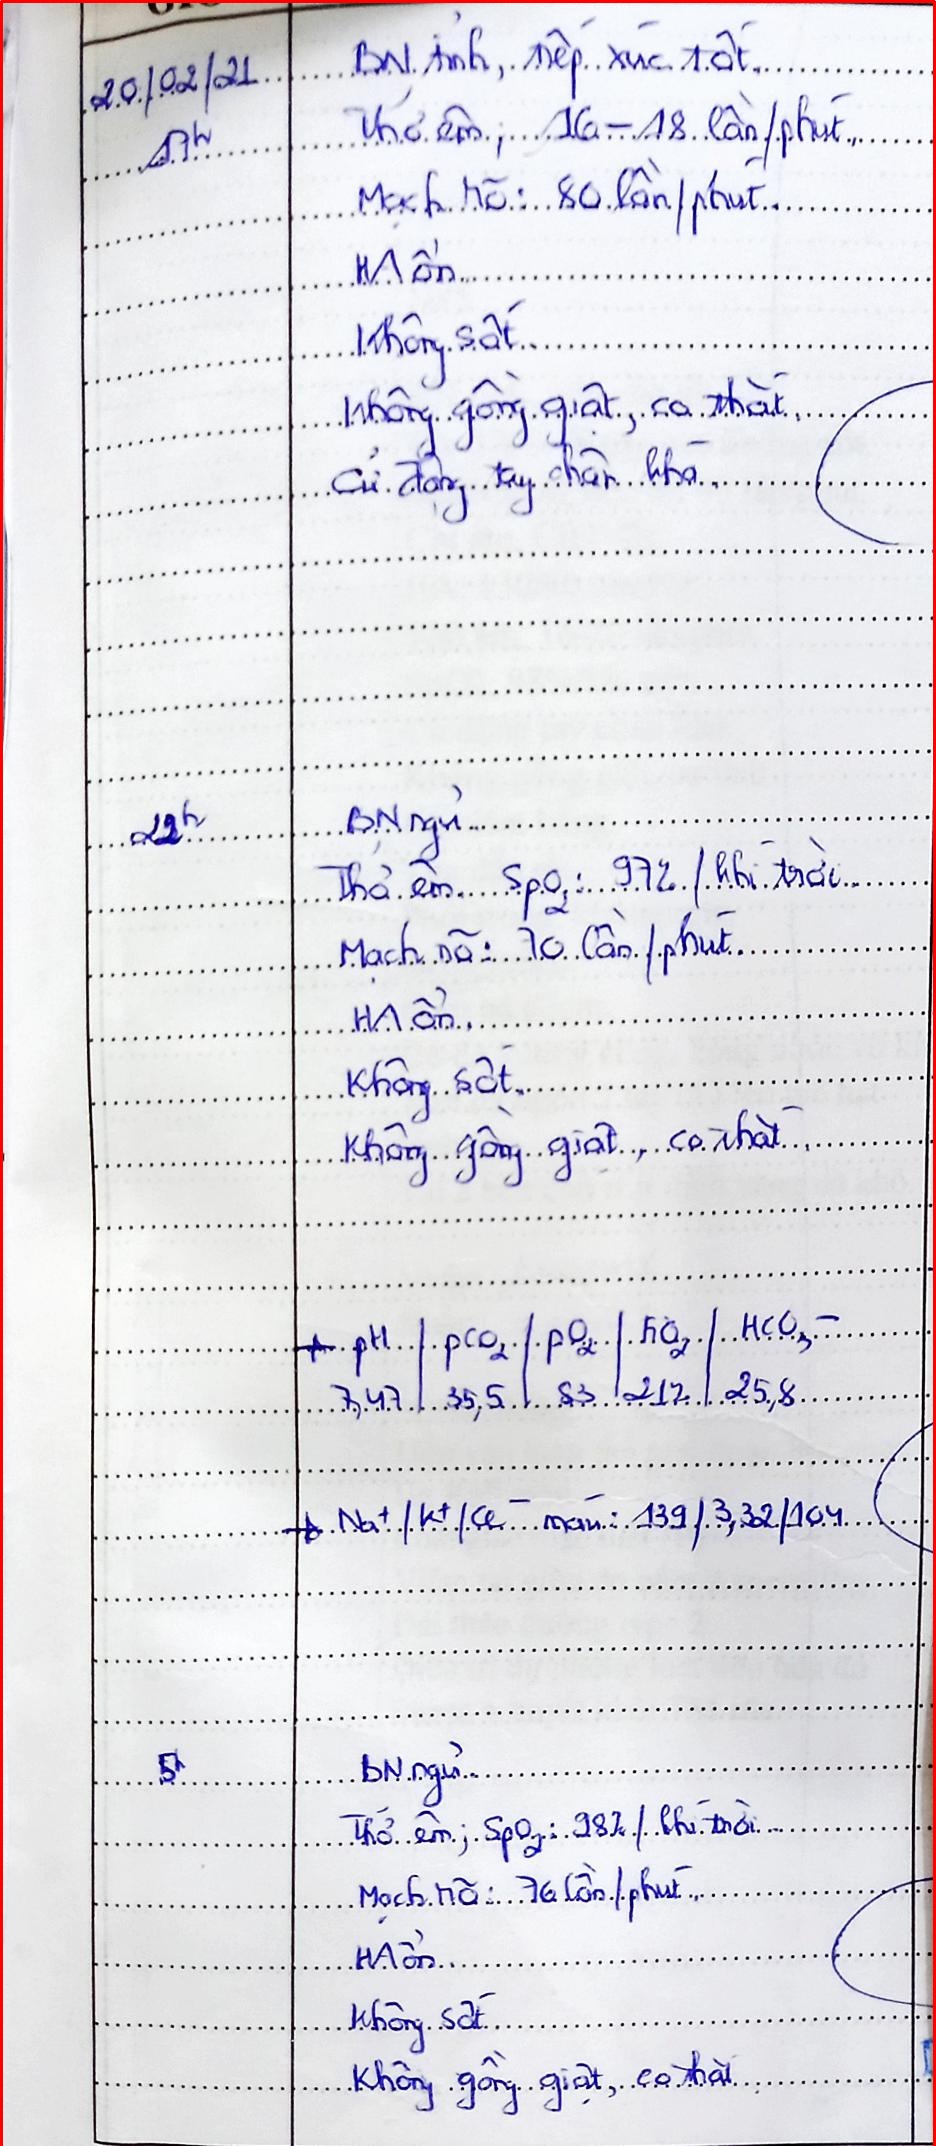 20/02/21
17h
BN tỉnh, tiếp xúc tốt.
Thở êm, 16-18 lần/phút.
Mạch rõ: 80 lần/phút.
HA ổn.
Không sốt.
Không gồng giật, co thắt.
Cử động tay chân khá.
22h
BN ngủ.
Thở êm. SpO2: 97% / khí trời.
Mạch rõ: 70 lần/phút.
HA ổn.
Không sốt.
Không gồng giật, co thắt.
→ pH | pCO2 | pO2 | FiO2 | HCO3-
7,47 | 35,5 | 83 | 21% | 25,8
→ Na+/K+/Cl- máu: 139/3,32/104
5h
BN ngủ.
Thở êm; SpO2: 98% / khí trời.
Mạch rõ: 76 lần/phút.
HA ổn.
Không sốt.
Không gồng giật, co thắt